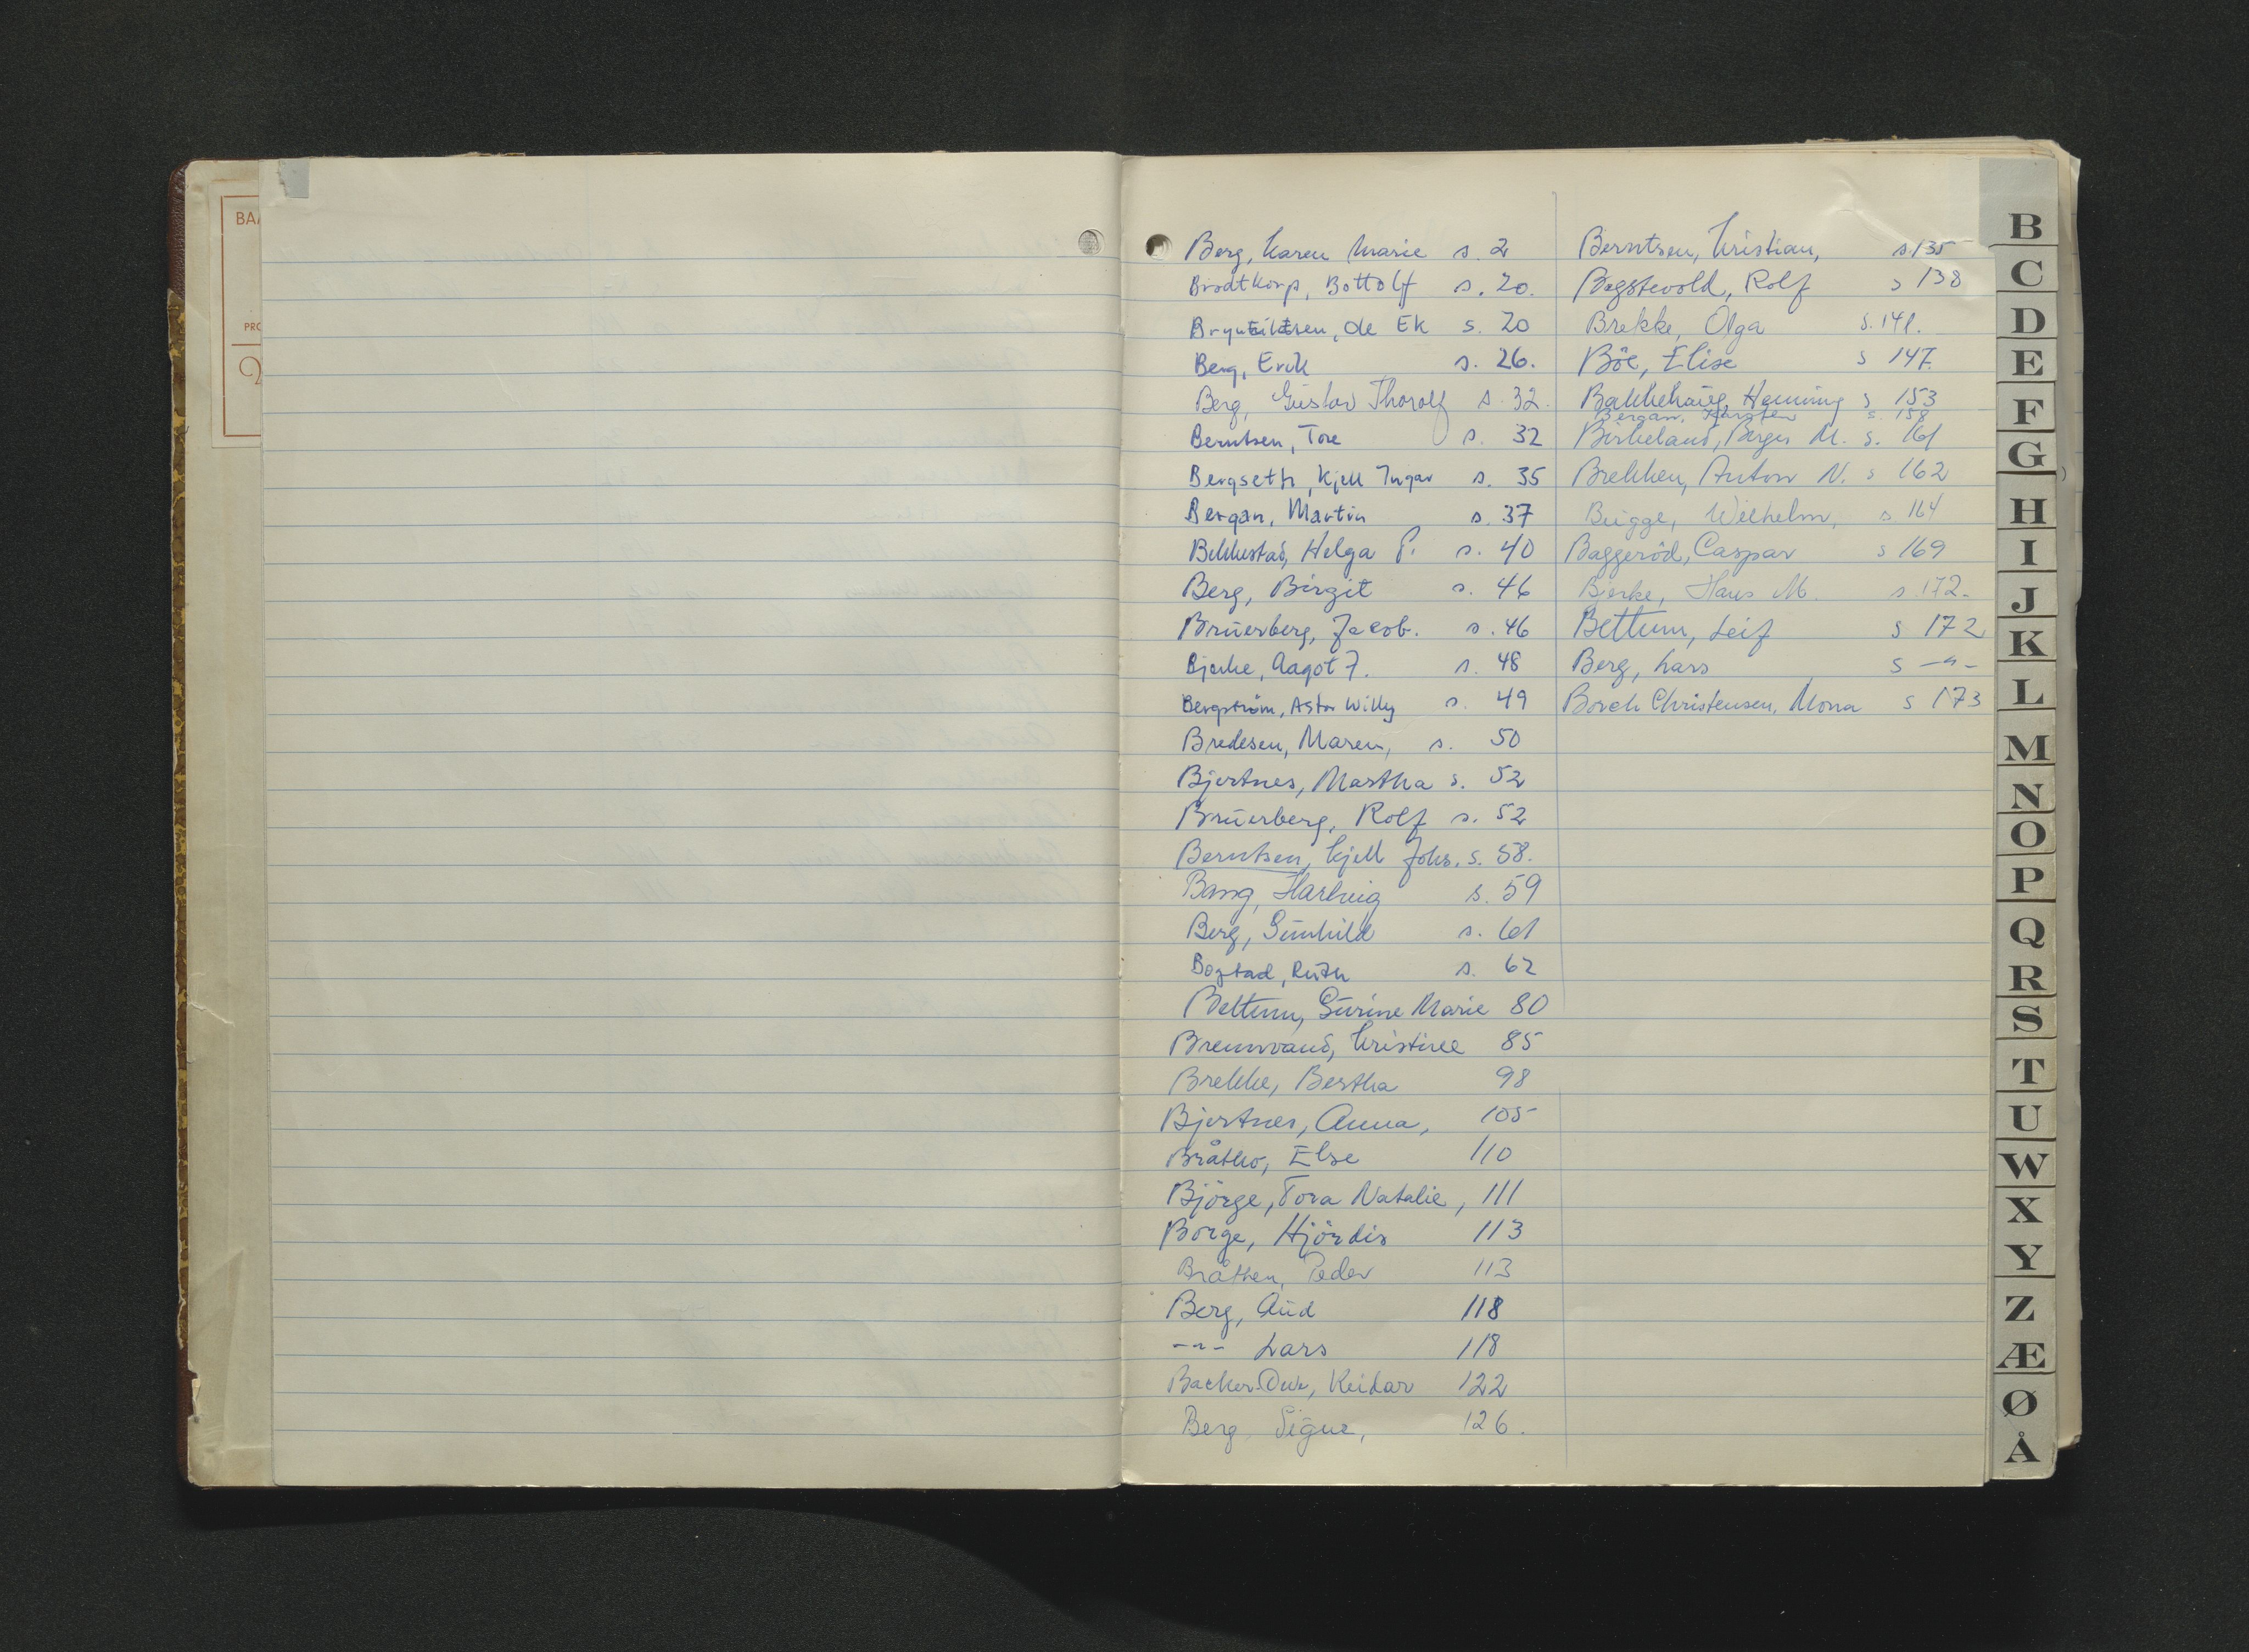 BA
PRO
Berg, Karen Marie s. 2
Brodtkorp, Bottolf s. 20.
de Ek s. 20
Berg, Erik s. 26.
Berg, Gustav Thorolf s. 32.
Berntsen, Tore s. 32
Bergseth, Kjell Ingar s. 35
Bergan, Martin s. 37
Bekkestad, Helga P. s. 40
Berg, Birgit s. 46
Bruerberg, Jacob. s. 46
Bjerke, Aagot F. s. 48
Bergström, Astor Willy s. 49
Bredesen, Maren, s. 50
Bjertnes, Martha s. 52
Bruerberg, Rolf s. 52
Berntsen, Kjell Johs. s. 58.
Bang, Hartvig s. 59
Berg, Gunhild s. 61
Bogstad, Ruth s. 62
Bettum, Gurine Marie 80
Brennvand, Kristine 85
Brekke, Bertha 98
Bjertnes, Anna, 105
Bråthó, Else 110
Björge, Tora Natalie, 111
Borge, Hjördis 113
Bråthen, Peder 113
Berg, Aud 118
-"- Lars 118
Backer-Owe, Reidar 122
Berg, Signe, 126.
Berntsen, Kristian, s. 135
Rolf s 138
Brekke, Olga s. 141.
Böe, Elise s 147
Bakkehaug, Henning s 153
Bergan, Karsten s. 158
Birkeland, Birger M. s. 161
Brekken, Anton N. s 162
Bugge, Wilhelm, s. 164
Baggeröd, Caspar s 169
Bjerke, Hans M. s 172.
Bettum, Leif s 172
Berg, Lars s -"-
Borch Christensen, Mona s 173
B
C
D
E
F
G
H
I
J
K
L
M
N
O
P
Q
R
S
T
U
W
X
Y
Z
Æ
Ø
Å